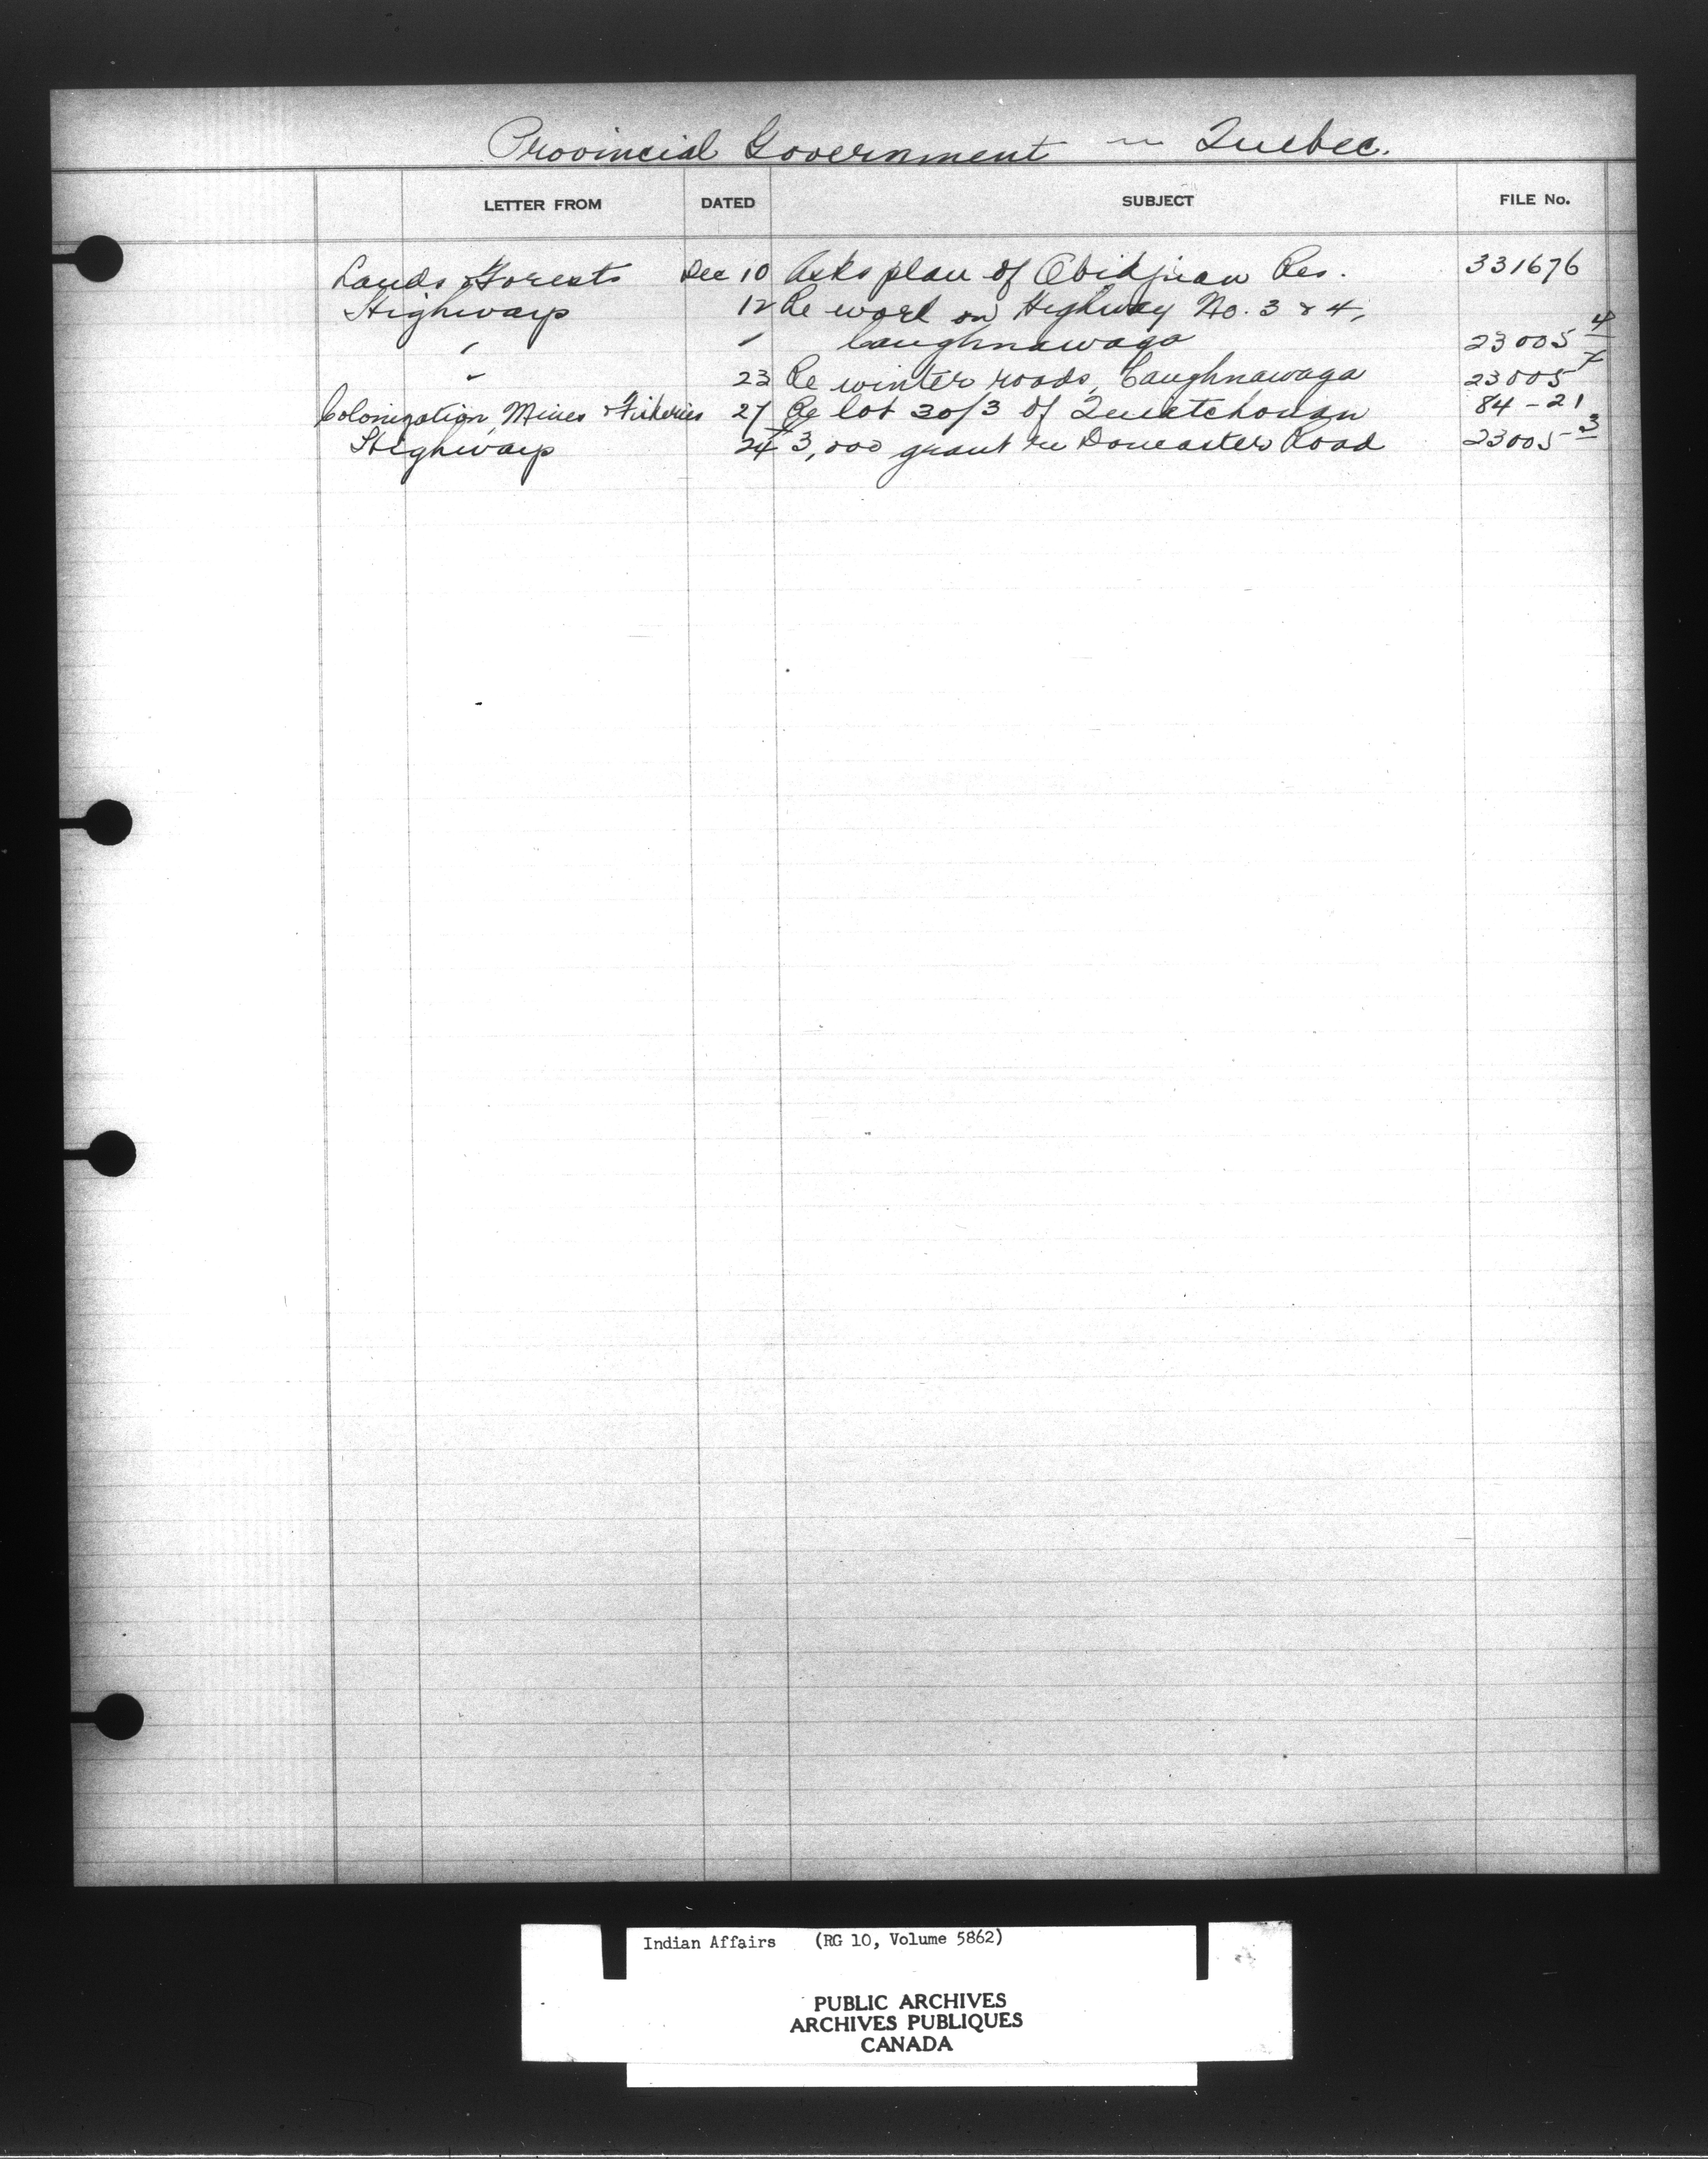 Provincial Government — Quebec.
LETTER FROM DATED SUBJECT FILE No.
Lands & Forests Dec 10 Asks plan of Obidjuan Res. 331676
Highways 12 Re work on Highway No. 3 & 4,
" " Caughnawaga 23005-4
" 23 Re winter roads, Caughnawaga 23005-7
Colonization, Mines & Fisheries 27 Re lot 30/3 of Quiatchouan 84-21
Highways 24 3,000 grant re Doncaster Road 23005-3
Indian Affairs (RG 10, Volume 5862)
PUBLIC ARCHIVES
ARCHIVES PUBLIQUES
CANADA